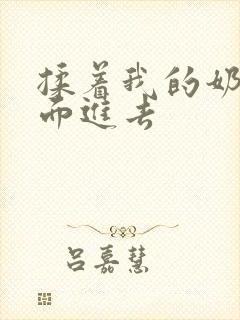 揉着我的奶
而进去
吕嘉慧